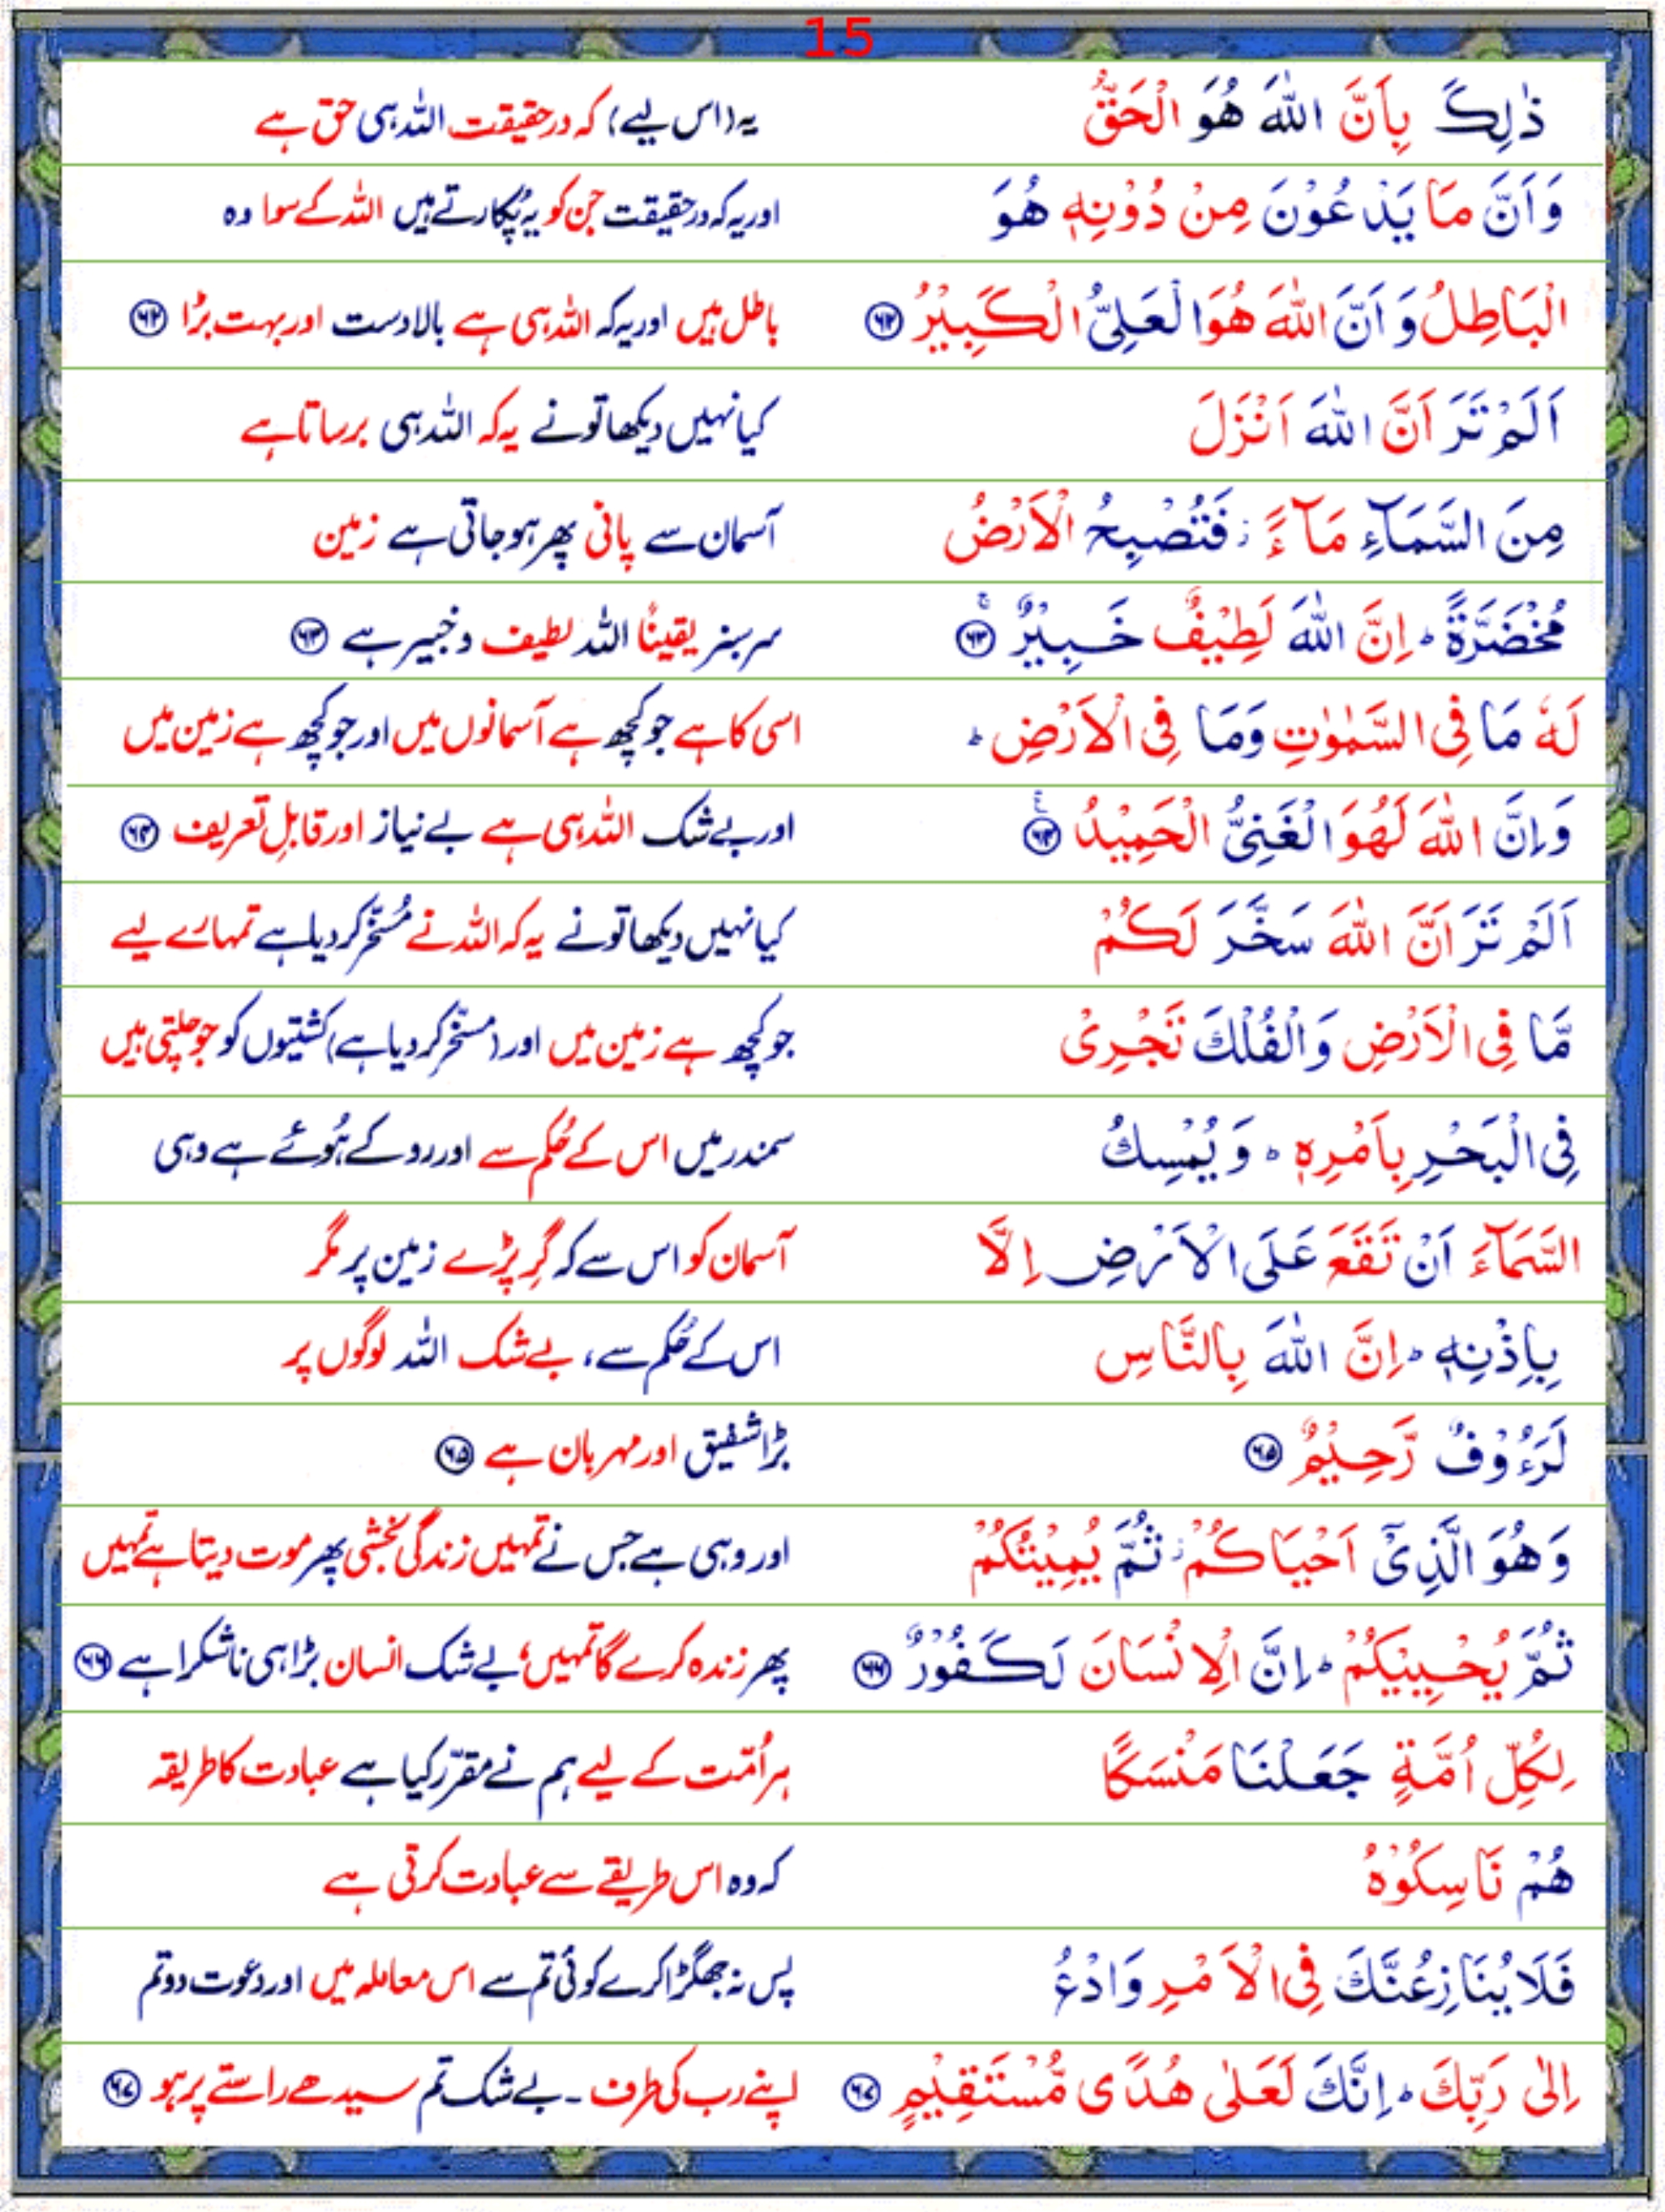 15
ذٰلِكَ بِاَنَّ اللّٰهَ هُوَ الْحَقُّ یہ (اس لیے) کہ درحقیقت اللہ ہی حق ہے
وَاَنَّ مَا يَدْعُوْنَ مِنْ دُوْنِهٖ هُوَ اور یہ کہ درحقیقت جن کو یہ پُکارتے ہیں اللہ کے سوا وہ
الْبَاطِلُ وَاَنَّ اللّٰهَ هُوَ الْعَلِيُّ الْكَبِيْرُ ۶۲ باطل ہیں اور یہ کہ اللہ ہی ہے بالادست اور بہت بڑا ۶۲
اَلَمْ تَرَ اَنَّ اللّٰهَ اَنْزَلَ کیا نہیں دیکھا تو نے یہ کہ اللہ ہی برساتا ہے
مِنَ السَّمَآءِ مَآءً ۡ فَتُصْبِحُ الْاَرْضُ آسمان سے پانی پھر ہو جاتی ہے زمین
مُخْضَرَّةً ؕ اِنَّ اللّٰهَ لَطِيْفٌ خَبِيْرٌ ۚ ۶۳ سرسبز یقیناً اللہ لطیف و خبیر ہے ۶۳
لَهٗ مَا فِي السَّمٰوٰتِ وَمَا فِي الْاَرْضِ ؕ اسی کا ہے جو کچھ ہے آسمانوں میں اور جو کچھ ہے زمین میں
وَاِنَّ اللّٰهَ لَهُوَ الْغَنِيُّ الْحَمِيْدُ ۶۴ اور بے شک اللہ ہی ہے بے نیاز اور قابلِ تعریف ۶۴
اَلَمْ تَرَ اَنَّ اللّٰهَ سَخَّرَ لَكُمْ کیا نہیں دیکھا تو نے یہ کہ اللہ نے مُسخّر کر دیا ہے تمہارے لیے
مَّا فِي الْاَرْضِ وَالْفُلْكَ تَجْرِيْ جو کچھ ہے زمین میں اور (مسخّر کر دیا ہے) کشتیوں کو جو چلتی ہیں
فِي الْبَحْرِ بِاَمْرِهٖ ؕ وَيُمْسِكُ سمندر میں اس کے حُکم سے اور روکے ہُوئے ہے وہی
السَّمَآءَ اَنْ تَقَعَ عَلَى الْاَرْضِ اِلَّا آسمان کو اس سے کہ گِر پڑے زمین پر مگر
بِاِذْنِهٖ ؕ اِنَّ اللّٰهَ بِالنَّاسِ اس کے حُکم سے، بے شک اللہ لوگوں پر
لَرَءُوْفٌ رَّحِيْمٌ ۶۵ بڑا شفیق اور مہربان ہے ۶۵
وَهُوَ الَّذِيْۤ اَحْيَاكُمْ ۡ ثُمَّ يُمِيْتُكُمْ اور وہی ہے جس نے تمہیں زندگی بخشی پھر موت دیتا ہے تمہیں
ثُمَّ يُحْيِيْكُمْ ؕ اِنَّ الْاِنْسَانَ لَكَفُوْرٌ ۶۶ پھر زندہ کرے گا تمہیں؛ بے شک انسان بڑا ہی ناشکرا ہے ۶۶
لِكُلِّ اُمَّةٍ جَعَلْنَا مَنْسَكًا ہر اُمّت کے لیے ہم نے مقرّر کیا ہے عبادت کا طریقہ
هُمْ نَاسِكُوْهُ کہ وہ اس طریقے سے عبادت کرتی ہے
فَلَا يُنَازِعُنَّكَ فِي الْاَمْرِ وَادْعُ پس نہ جھگڑا کرے کوئی تم سے اس معاملہ میں اور دعوت دو تم
اِلٰى رَبِّكَ ؕ اِنَّكَ لَعَلٰى هُدًى مُّسْتَقِيْمٍ ۶۷ اپنے رب کی طرف ۔ بے شک تم سیدھے راستے پر ہو ۶۷